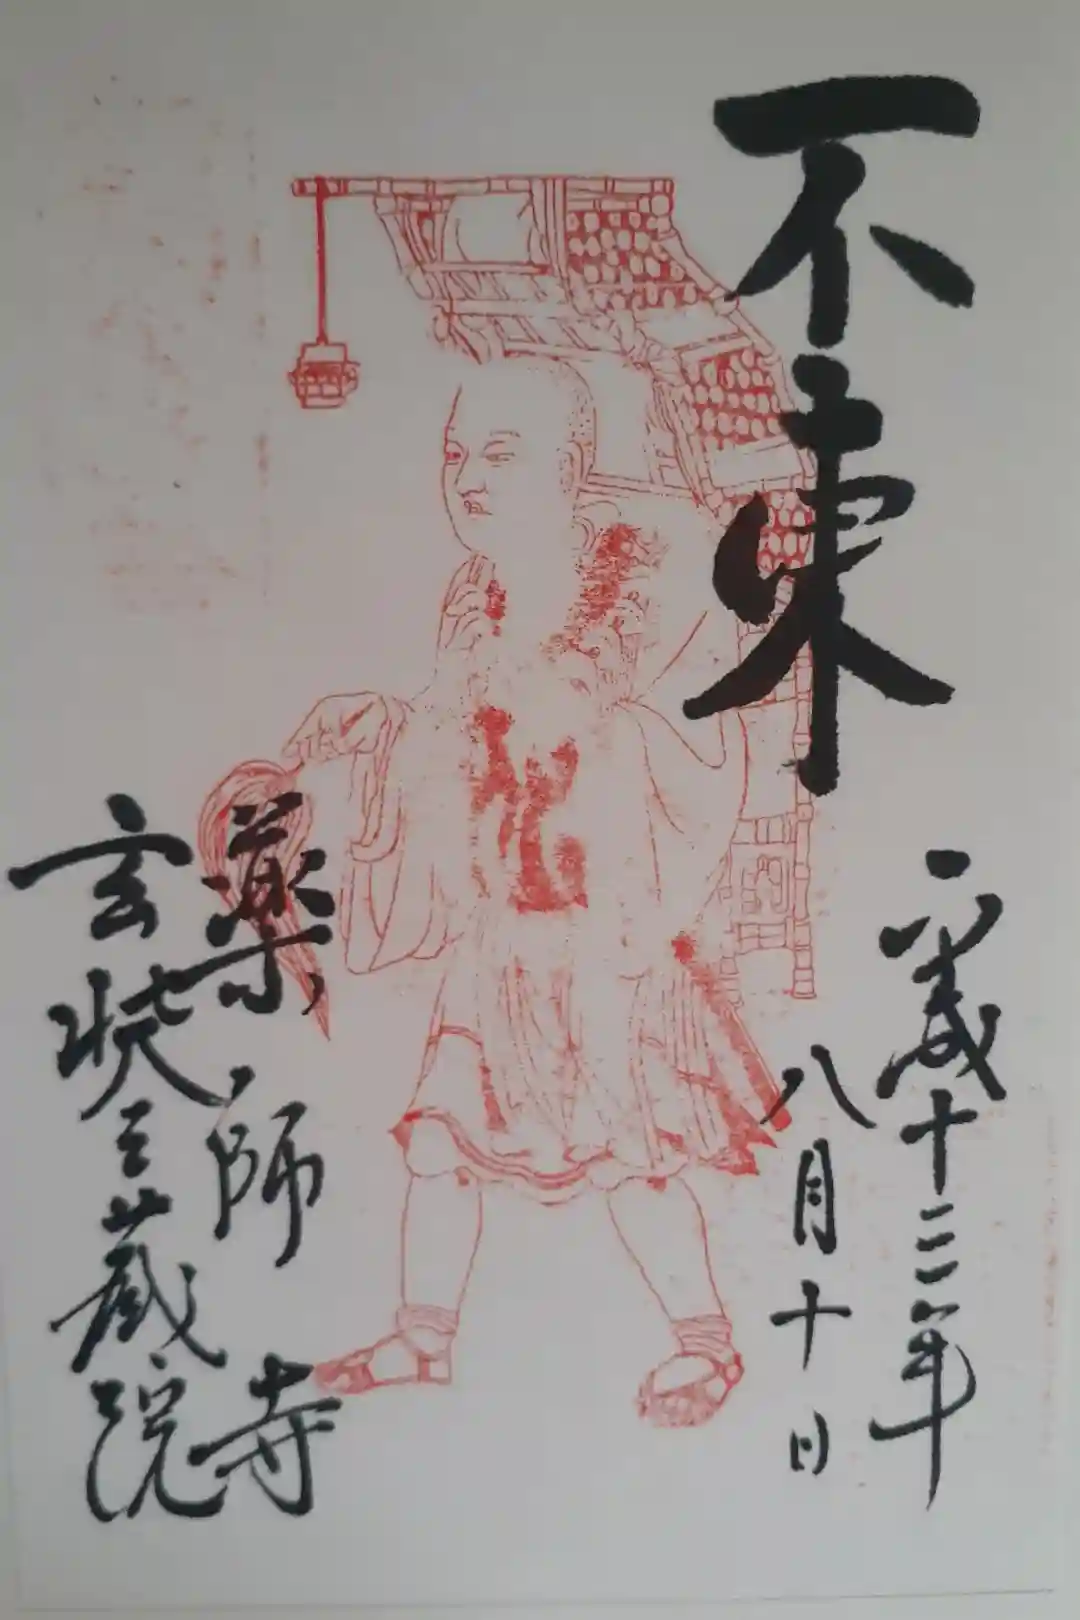 不東
平成十三年
八月十日
薬師寺
玄奘三蔵院